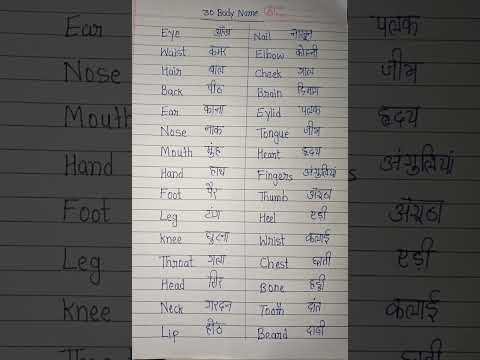 30 Body Name
Eye आँख Nail नाखून
Waist कमर Elbow कोहनी
Hair बाल Cheek गाल
Back पीठ Brain दिमाग
Ear कान Eylid पलक
Nose नाक Tongue जीभ
Mouth मुंह Heart हृदय
Hand हाथ Fingers अंगुलियां
Foot पैर Thumb अंगूठा
Leg टांग Heel एड़ी
Knee घुटना Wrist कलाई
Throat गला Chest छाती
Head सिर Bone हड्डी
Neck गरदन Tooth दांत
Lip होंठ Beard दाढ़ी
Ear पलक
Nose जीभ
Mouth हृदय
Hand अंगुलियां
Foot अंगूठा
Leg एड़ी
Knee कलाई